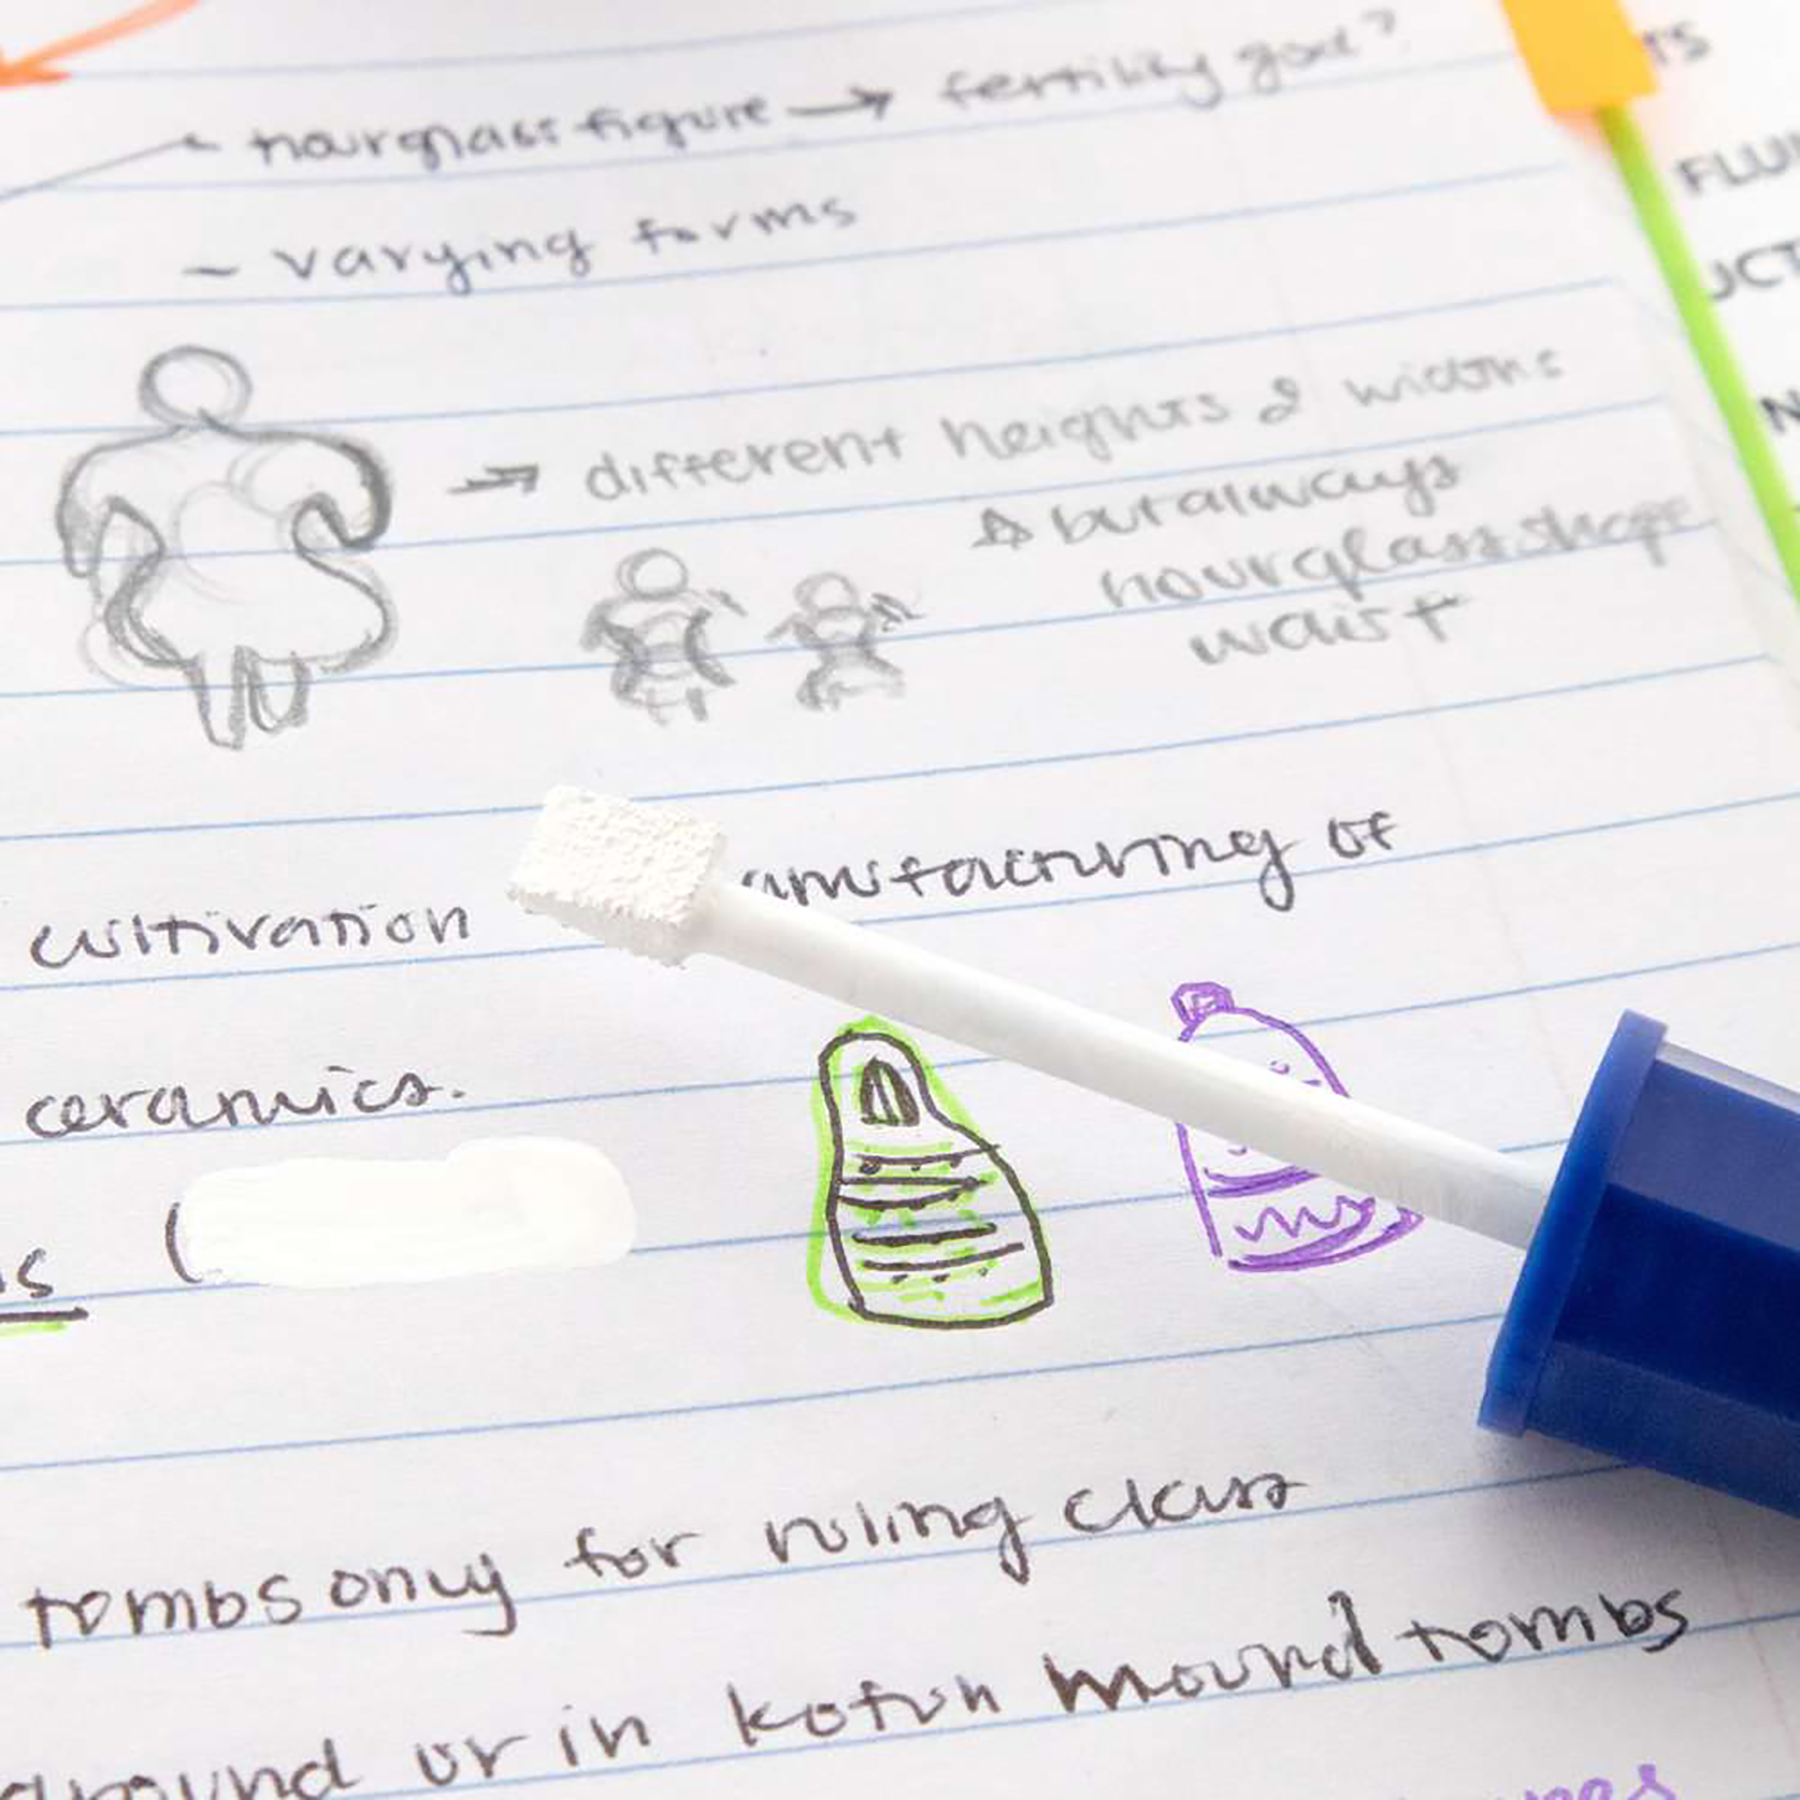 hourglass figure → fertility god?
- varying forms
→ different heights & widths
☆ but always
hourglass shape
waist
cultivation
of
ceramics.
(
tombs only for ruling class
or in kofun mound tombs